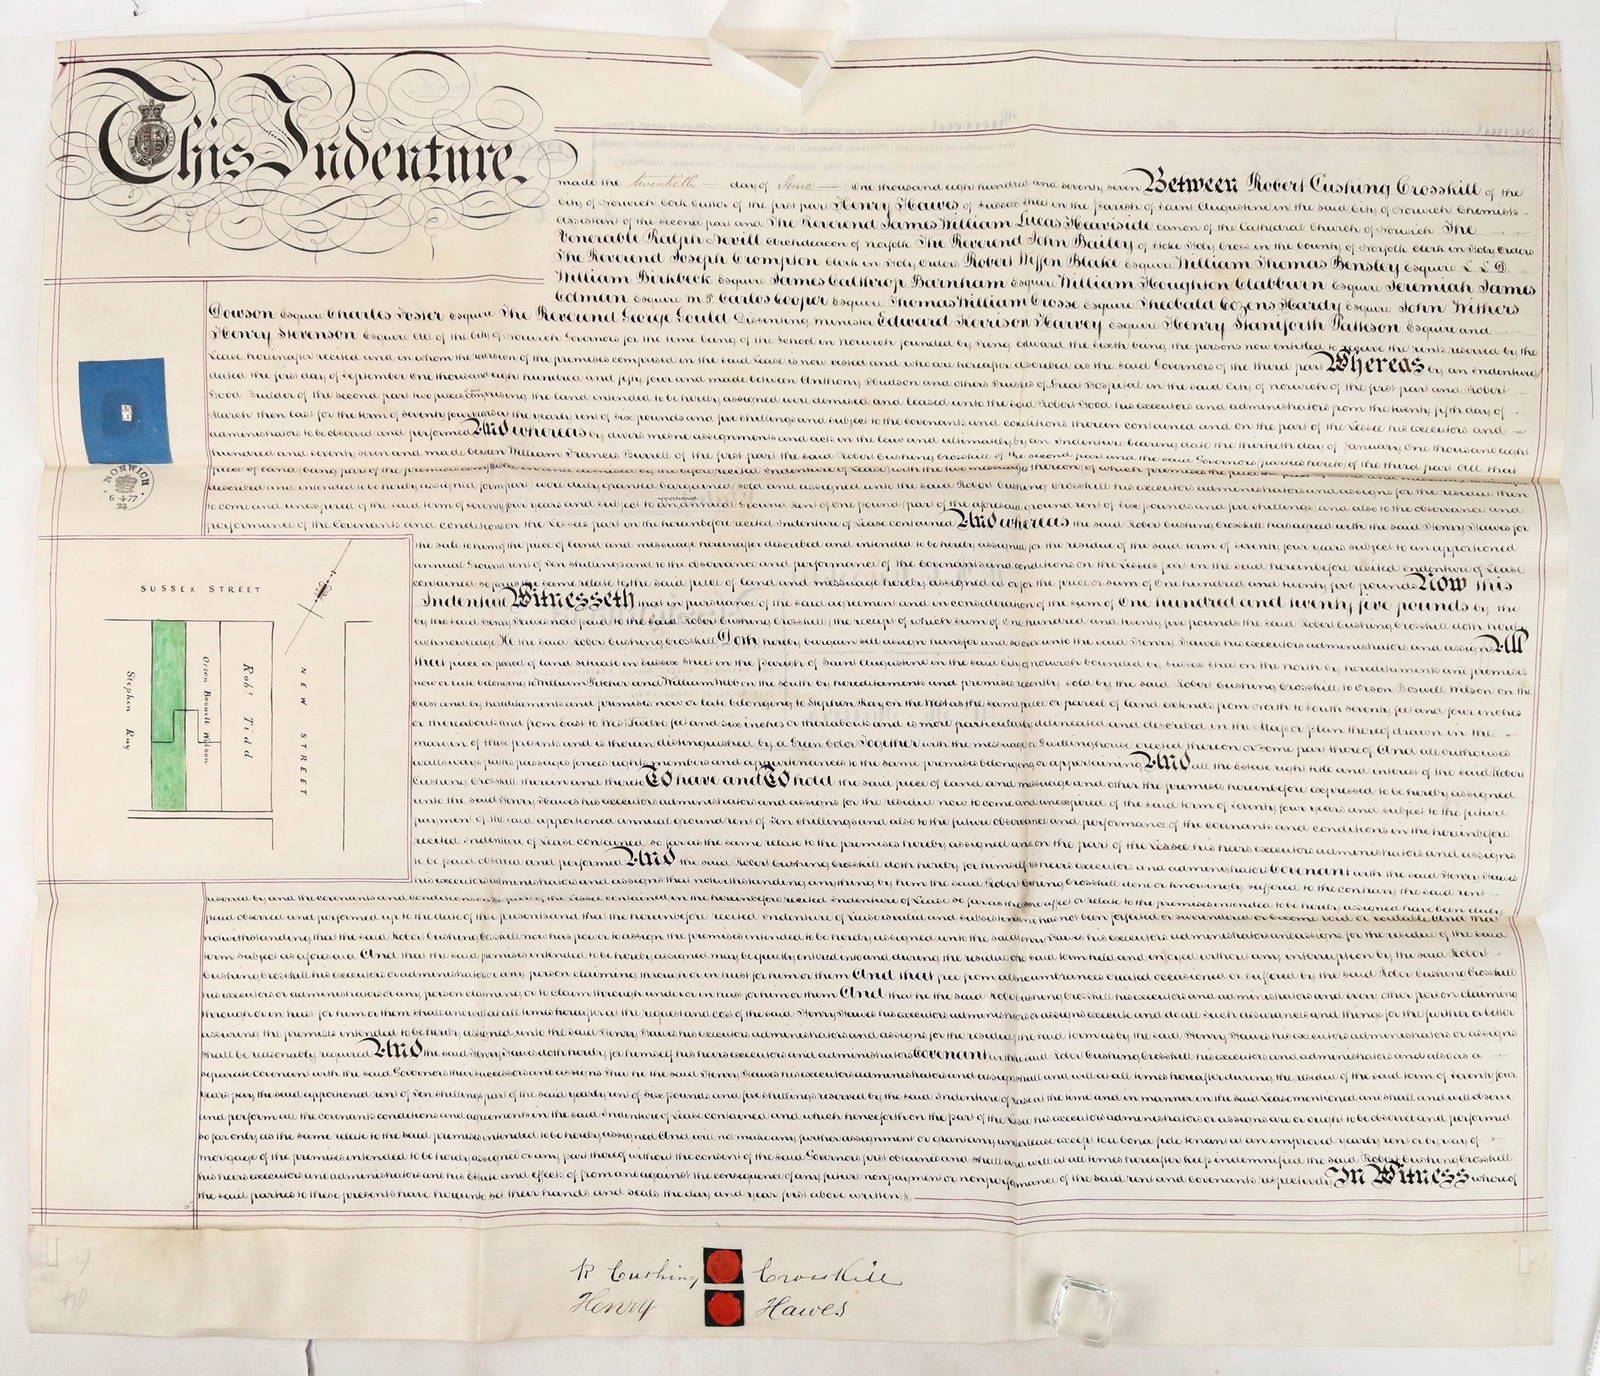 This Indenture
made the twentieth day of June one thousand eight hundred and seventy seven Between Robert Cushing Crosskill of the
City of Norwich Cork Cutter of the first part Henry Hawes of Sussex Street in the Parish of Saint Augustine in the said City of Norwich Chemists
Assistant of the second part and The Reverend James William Lucas Heaviside Canon of the Cathedral Church of Norwich The
Venerable Ralph Nevill Archdeacon of Norfolk The Reverend John Bailey of Stoke Holy Cross in the County of Norfolk Clerk in Holy Orders
The Reverend Joseph Crompton Clerk in Holy Orders Robert Wiffen Blake Esquire William Thomas Bensley Esquire L L D
William Birkbeck Esquire James Calthrop Barnham Esquire William Houghton Clabburn Esquire Jeremiah James
Colman Esquire M P Carlos Cooper Esquire Thomas William Crosse Esquire Theobald Cozens Hardy Esquire John Withers
Dowson Esquire Charles Foster Esquire The Reverend George Gould Dissenting Minister Edward Kerrison Harvey Esquire Henry Staniforth Patteson Esquire and
Henry Stevenson Esquire All of the City of Norwich Governors for the time being of the School in Norwich founded by King Edward the Sixth being the persons now entitled to receive the rents reserved by the
Lease hereinafter recited and in whom the reversion of the premises comprised in the said Lease is now vested and who are hereafter described as the said Governors of the third part Whereas by an Indenture
dated the first day of September One thousand eight hundred and fifty four and made between Anthony Hudson and others Trustees of Great Hospital in the said City of Norwich of the first part and Robert
Tood Builder of the second part two pieces comprising the land intended to be hereby assigned were demised and leased unto the said Robert Tood his executors and administrators from the twenty fifth day of
March then last for the term of seventy four years at the yearly rent of six pounds and five shillings and subject to the covenants and conditions therein contained and on the part of the Lessee his executors and
administrators to be observed and performed And whereas by divers mesne assignments and acts in the law and ultimately by an Indenture bearing date the thirtieth day of January One thousand eight
hundred and seventy seven and made between William Francis Burrell of the first part the said Robert Cushing Crosskill of the second part and the said Governors (parties hereto) of the third part All that
piece of land being part of the premises
described and intended to be hereby assigned form part were duly granted bargained sold and assigned unto the said Robert Cushing Crosskill his executors administrators and assigns for the residue then
to come and unexpired of the said term of seventy four years and subject to an apportioned annual Ground Rent of One pound part of the aforesaid ground rent of six pounds and five shillings and also to the observance and
performance of the Covenants and conditions on the Lessees part in the hereinbefore recited Indenture of Lease contained And whereas the said Robert Cushing Crosskill has agreed with the said Henry Hawes for
the sale to him of the piece of land and messuage hereinafter described and intended to be hereby assigned for the residue of the said term of seventy four years subject to an apportioned
annual Ground rent of Ten shillings and to the observance and performance of the Covenants and conditions on the Lessees part in the said hereinbefore recited Indenture of Lease
contained so far as the same relate to the said piece of land and messuage hereby assigned at or for the price or sum of One hundred and twenty five pounds Now this
Indenture Witnesseth that in pursuance of the said agreement and in consideration of the sum of One hundred and twenty five pounds by the
by the said Henry Hawes now paid to the said Robert Cushing Crosskill the receipt of which sum of One hundred and twenty five pounds the said Robert Cushing Crosskill doth hereby
acknowledge He the said Robert Cushing Crosskill Doth hereby bargain sell assign transfer and set over unto the said Henry Hawes his executors administrators and assigns All
that piece or parcel of land situate in Sussex Street in the Parish of Saint Augustine in the said City of Norwich bounded by Sussex Street on the north by hereditaments and premises
now or late belonging to William Pitcher and William Webb on the South by hereditaments and premises recently sold by the said Robert Cushing Crosskill to Orson Boswell Wilson on the
East and by hereditaments and premises now or late belonging to Stephen Ray on the West as the same piece or parcel of land extends from North to South seventy feet and four inches
or thereabouts and from East to West Twelve feet and six inches or thereabouts and is more particularly delineated and described in the Map or plan thereof drawn in the
margin of these presents and is therein distinguished by a Green Color Together with the messuage or Dwellinghouse erected thereon or some part thereof And all outhouses
walls ways paths passages fences rights members and appurtenances to the same premises belonging or appertaining And all the Estate right title and interest of the said Robert
Cushing Crosskill therein and thereto To have and To hold the said piece of land and messuage and other the premises hereinbefore expressed to be hereby assigned
unto the said Henry Hawes his executors administrators and assigns for the residue now to come and unexpired of the said term of Seventy four years and subject to the future
payment of the said apportioned annual ground rent of Ten shillings and also to the future observance and performance of the covenants and conditions in the hereinbefore
recited Indenture of Lease contained so far as the same relate to the premises hereby assigned and on the part of the Lessee his heirs executors administrators and assigns
to be paid observed and performed And the said Robert Cushing Crosskill doth hereby for himself his heirs executors and administrators Covenant with the said Henry Hawes
his executors administrators and assigns that notwithstanding anything by him the said Robert Cushing Crosskill done or knowingly suffered to the contrary the said rent
reserved by and the covenants and conditions on the part of the Lessee contained in the hereinbefore recited Indenture of Lease so far as the same affect or relate to the premises intended to be hereby assigned have been duly
paid observed and performed up to the date of these presents and that the hereinbefore recited Indenture of Lease is valid and subsisting and has not been forfeited or surrendered or become void or voidable And that
notwithstanding that the said Robert Cushing Crosskill now has power to assign the premises intended to be hereby assigned unto the said Henry Hawes his executors administrators and assigns for the residue of the said
term subject as aforesaid And that the said premises intended to be hereby assigned may be quietly entered into and during the residue of the said term held and enjoyed without any interruption by the said Robert
Cushing Crosskill his executors or administrators or any person claiming through or in trust for him or them And that free from all encumbrances created occasioned or suffered by the said Robert Cushing Crosskill
his executors or administrators or any person claiming or to claim through under or in trust for him or them And that he the said Robert Cushing Crosskill his executors and administrators and every other person claiming
through or in trust for him or them shall and will at all times hereafter at the request and cost of the said Henry Hawes his executors administrators or assigns execute and do all such assurances and things for the further or better
assuring the premises intended to be hereby assigned unto the said Henry Hawes his executors administrators and assigns for the residue of the said term as by the said Henry Hawes his executors administrators or assigns
shall be reasonably required And the said Henry Hawes doth hereby for himself his heirs executors and administrators Covenant with the said Robert Cushing Crosskill his executors and administrators and also as a
separate Covenant with the said Governors their successors and assigns That he the said Henry Hawes his executors administrators and assigns shall and will at all times hereafter during the residue of the said term of seventy four
years pay the said apportioned rent of Ten shillings part of the said yearly rent of six pounds and five shillings reserved by the said Indenture of Lease at the time and in manner in the said Lease mentioned and shall and will observe
and perform all the covenants conditions and agreements in the said Indenture of Lease contained and which henceforth on the part of the Lessee his executors administrators or assigns are or ought to be observed and performed
so far only as the same relate to the said premises intended to be hereby assigned And will not make any further assignment or grant any underlease except to a bona fide tenant at an improved yearly rent or by way of
mortgage of the premises intended to be hereby assigned or any part thereof without the consent of the said Governors first obtained and shall and will at all times hereafter keep indemnified the said Robert Cushing Crosskill
his heirs executors and administrators and his Estate and effects of from and against the consequence of any future nonpayment or nonperformance of the said rent and Covenants respectively In Witness whereof
the said parties to these presents have hereunto set their hands and seals the day and year first above written
NORWICH
SUSSEX STREET
Stephen Ray
Orson Boswell Wilson
Robt Tidd
NEW STREET
R Cushing Crosskill
Henry Hawes